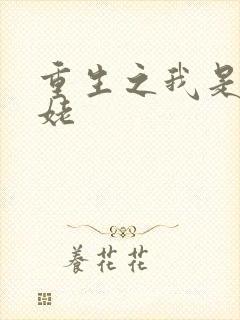 重生之我是
姥
養花花